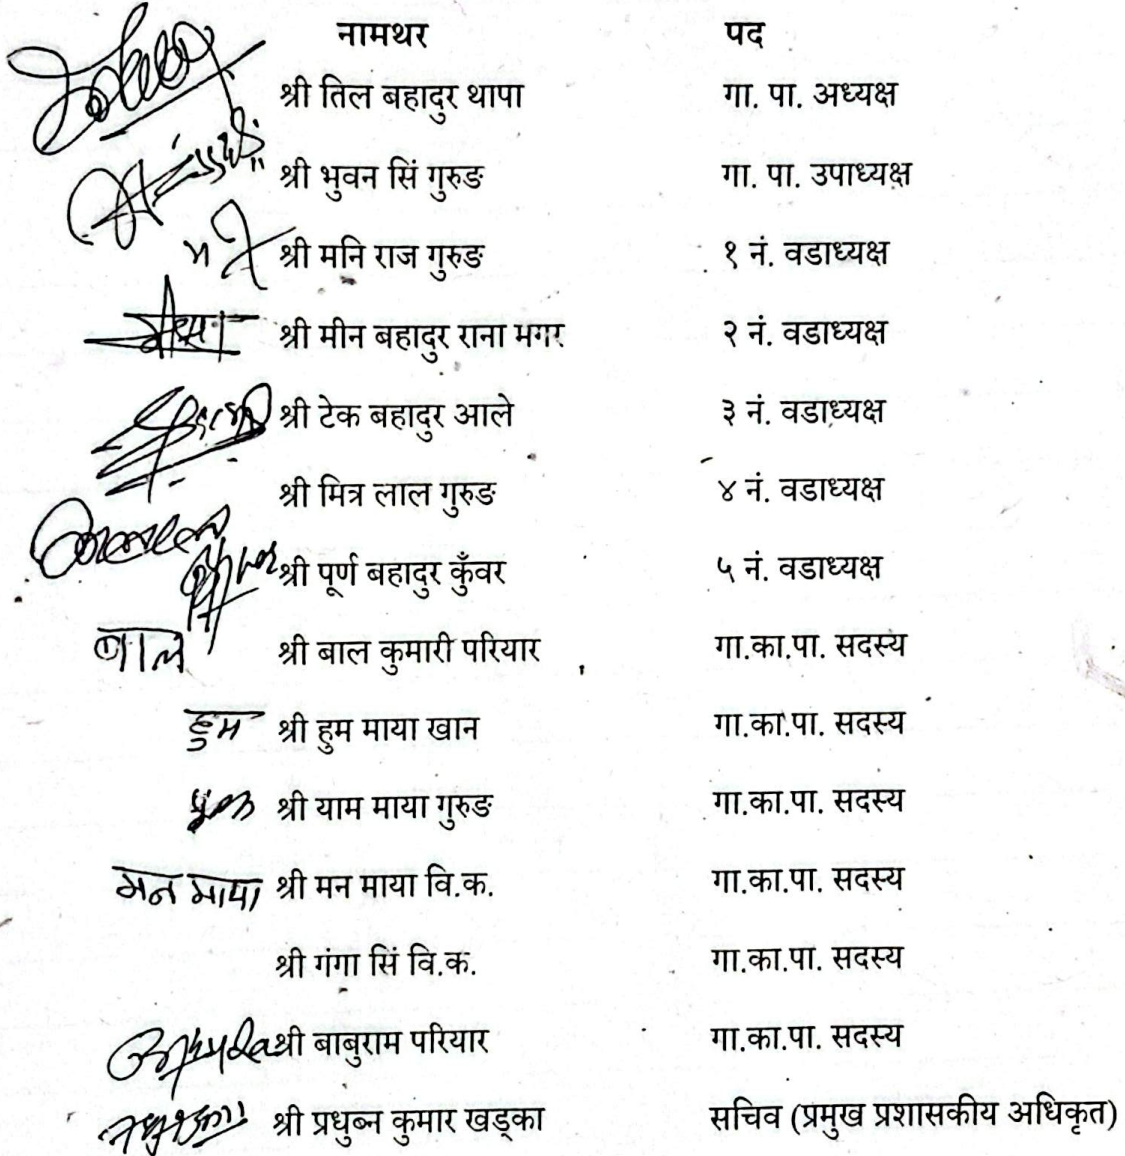 नामथर पद
श्री तिल बहादुर थापा गा. पा. अध्यक्ष
श्री भुवन सिं गुरुङ गा. पा. उपाध्यक्ष
श्री मनि राज गुरुङ १ नं. वडाध्यक्ष
श्री मीन बहादुर राना मगर २ नं. वडाध्यक्ष
श्री टेक बहादुर आले ३ नं. वडाध्यक्ष
श्री मित्र लाल गुरुङ ४ नं. वडाध्यक्ष
श्री पूर्ण बहादुर कुँवर ५ नं. वडाध्यक्ष
बाल श्री बाल कुमारी परियार गा.का.पा. सदस्य
हुम श्री हुम माया खान गा.का.पा. सदस्य
श्री याम माया गुरुङ गा.का.पा. सदस्य
मन माया श्री मन माया वि.क. गा.का.पा. सदस्य
श्री गंगा सिं वि.क. गा.का.पा. सदस्य
श्री बाबुराम परियार गा.का.पा. सदस्य
श्री प्रधुब्न कुमार खड्का सचिव (प्रमुख प्रशासकीय अधिकृत)